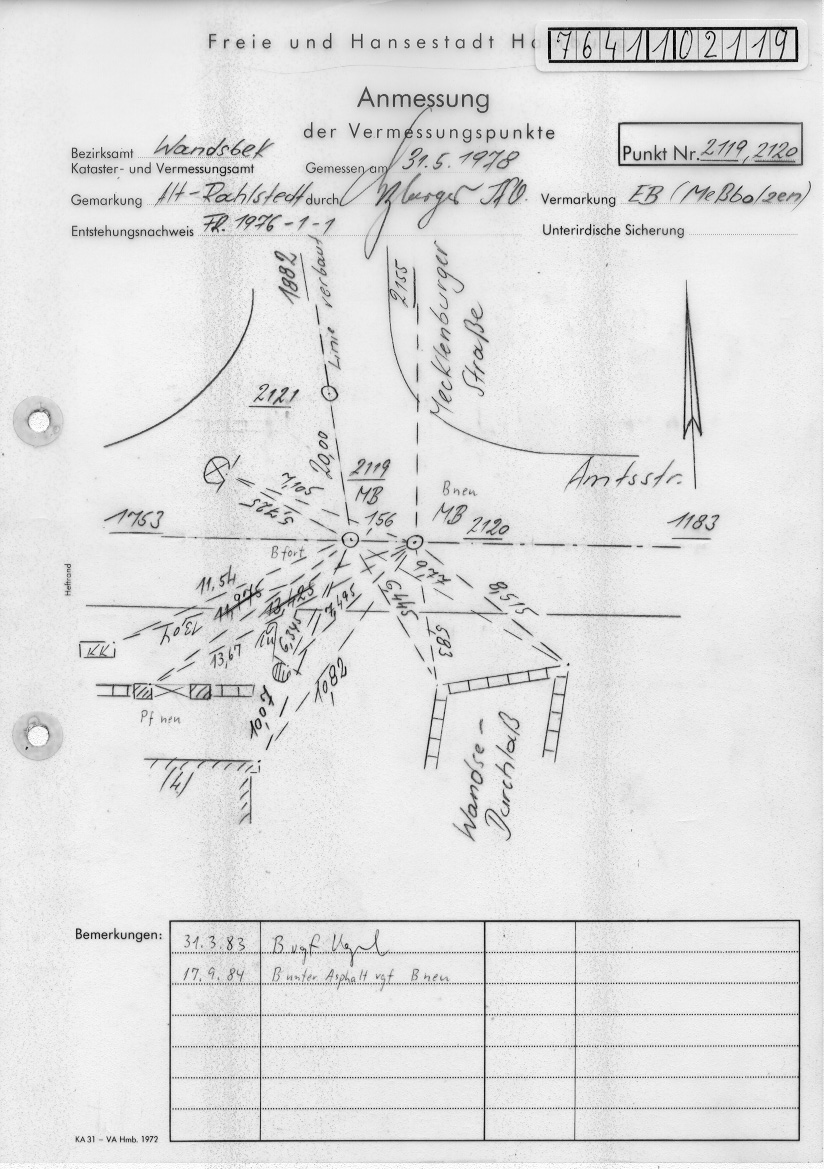 Freie und Hansestadt
7641102119
Anmessung
der Vermessungspunkte
Bezirksamt Wandsbek
Kataster- und Vermessungsamt
Gemessen am 31.5.1978
Punkt Nr. 2119, 2120
Gemarkung Alt-Rahlstedt durch
Vermarkung EB (Meßbolzen)
Entstehungsnachweis FR. 1976-1-1
Unterirdische Sicherung
1882
Linie verbaut
2155
Mecklenburger
Straße
2121
20,00
2119
MB
7,105
5,725
B neu
MB
2120
Amtsstr.
1753
1,56
1183
B fort
Heftrand
11,54
11,975
13,425
13,04
7,495
6,445
9,77
8,515
KK
13,67
6,345
5,83
Pf neu
10,07
10,82
(4)
Wandse-
Durchlaß
Bemerkungen:
31.3.83 B vgf
17.9.84 B unter Asphalt vgf B neu
KA 31 – VA Hmb. 1972